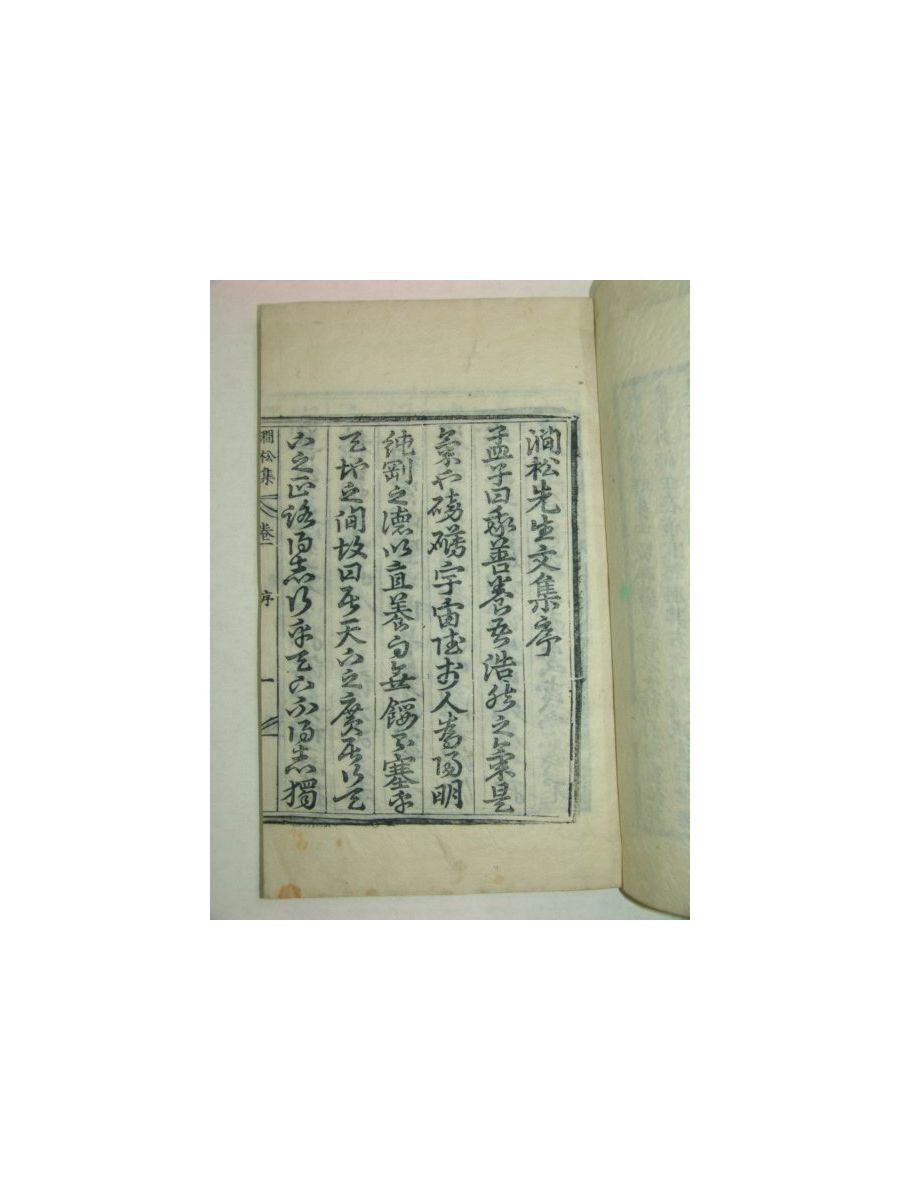 澗松先生文集序
孟子曰我善養吾浩然之氣是
氣也磅礴宇宙時於人爲陽明
純剛之德以直養而無餒乃塞乎
天地之間故曰居天下之廣居行天
下之正路得志行乎天下不得志獨
澗松集 卷一 序 一